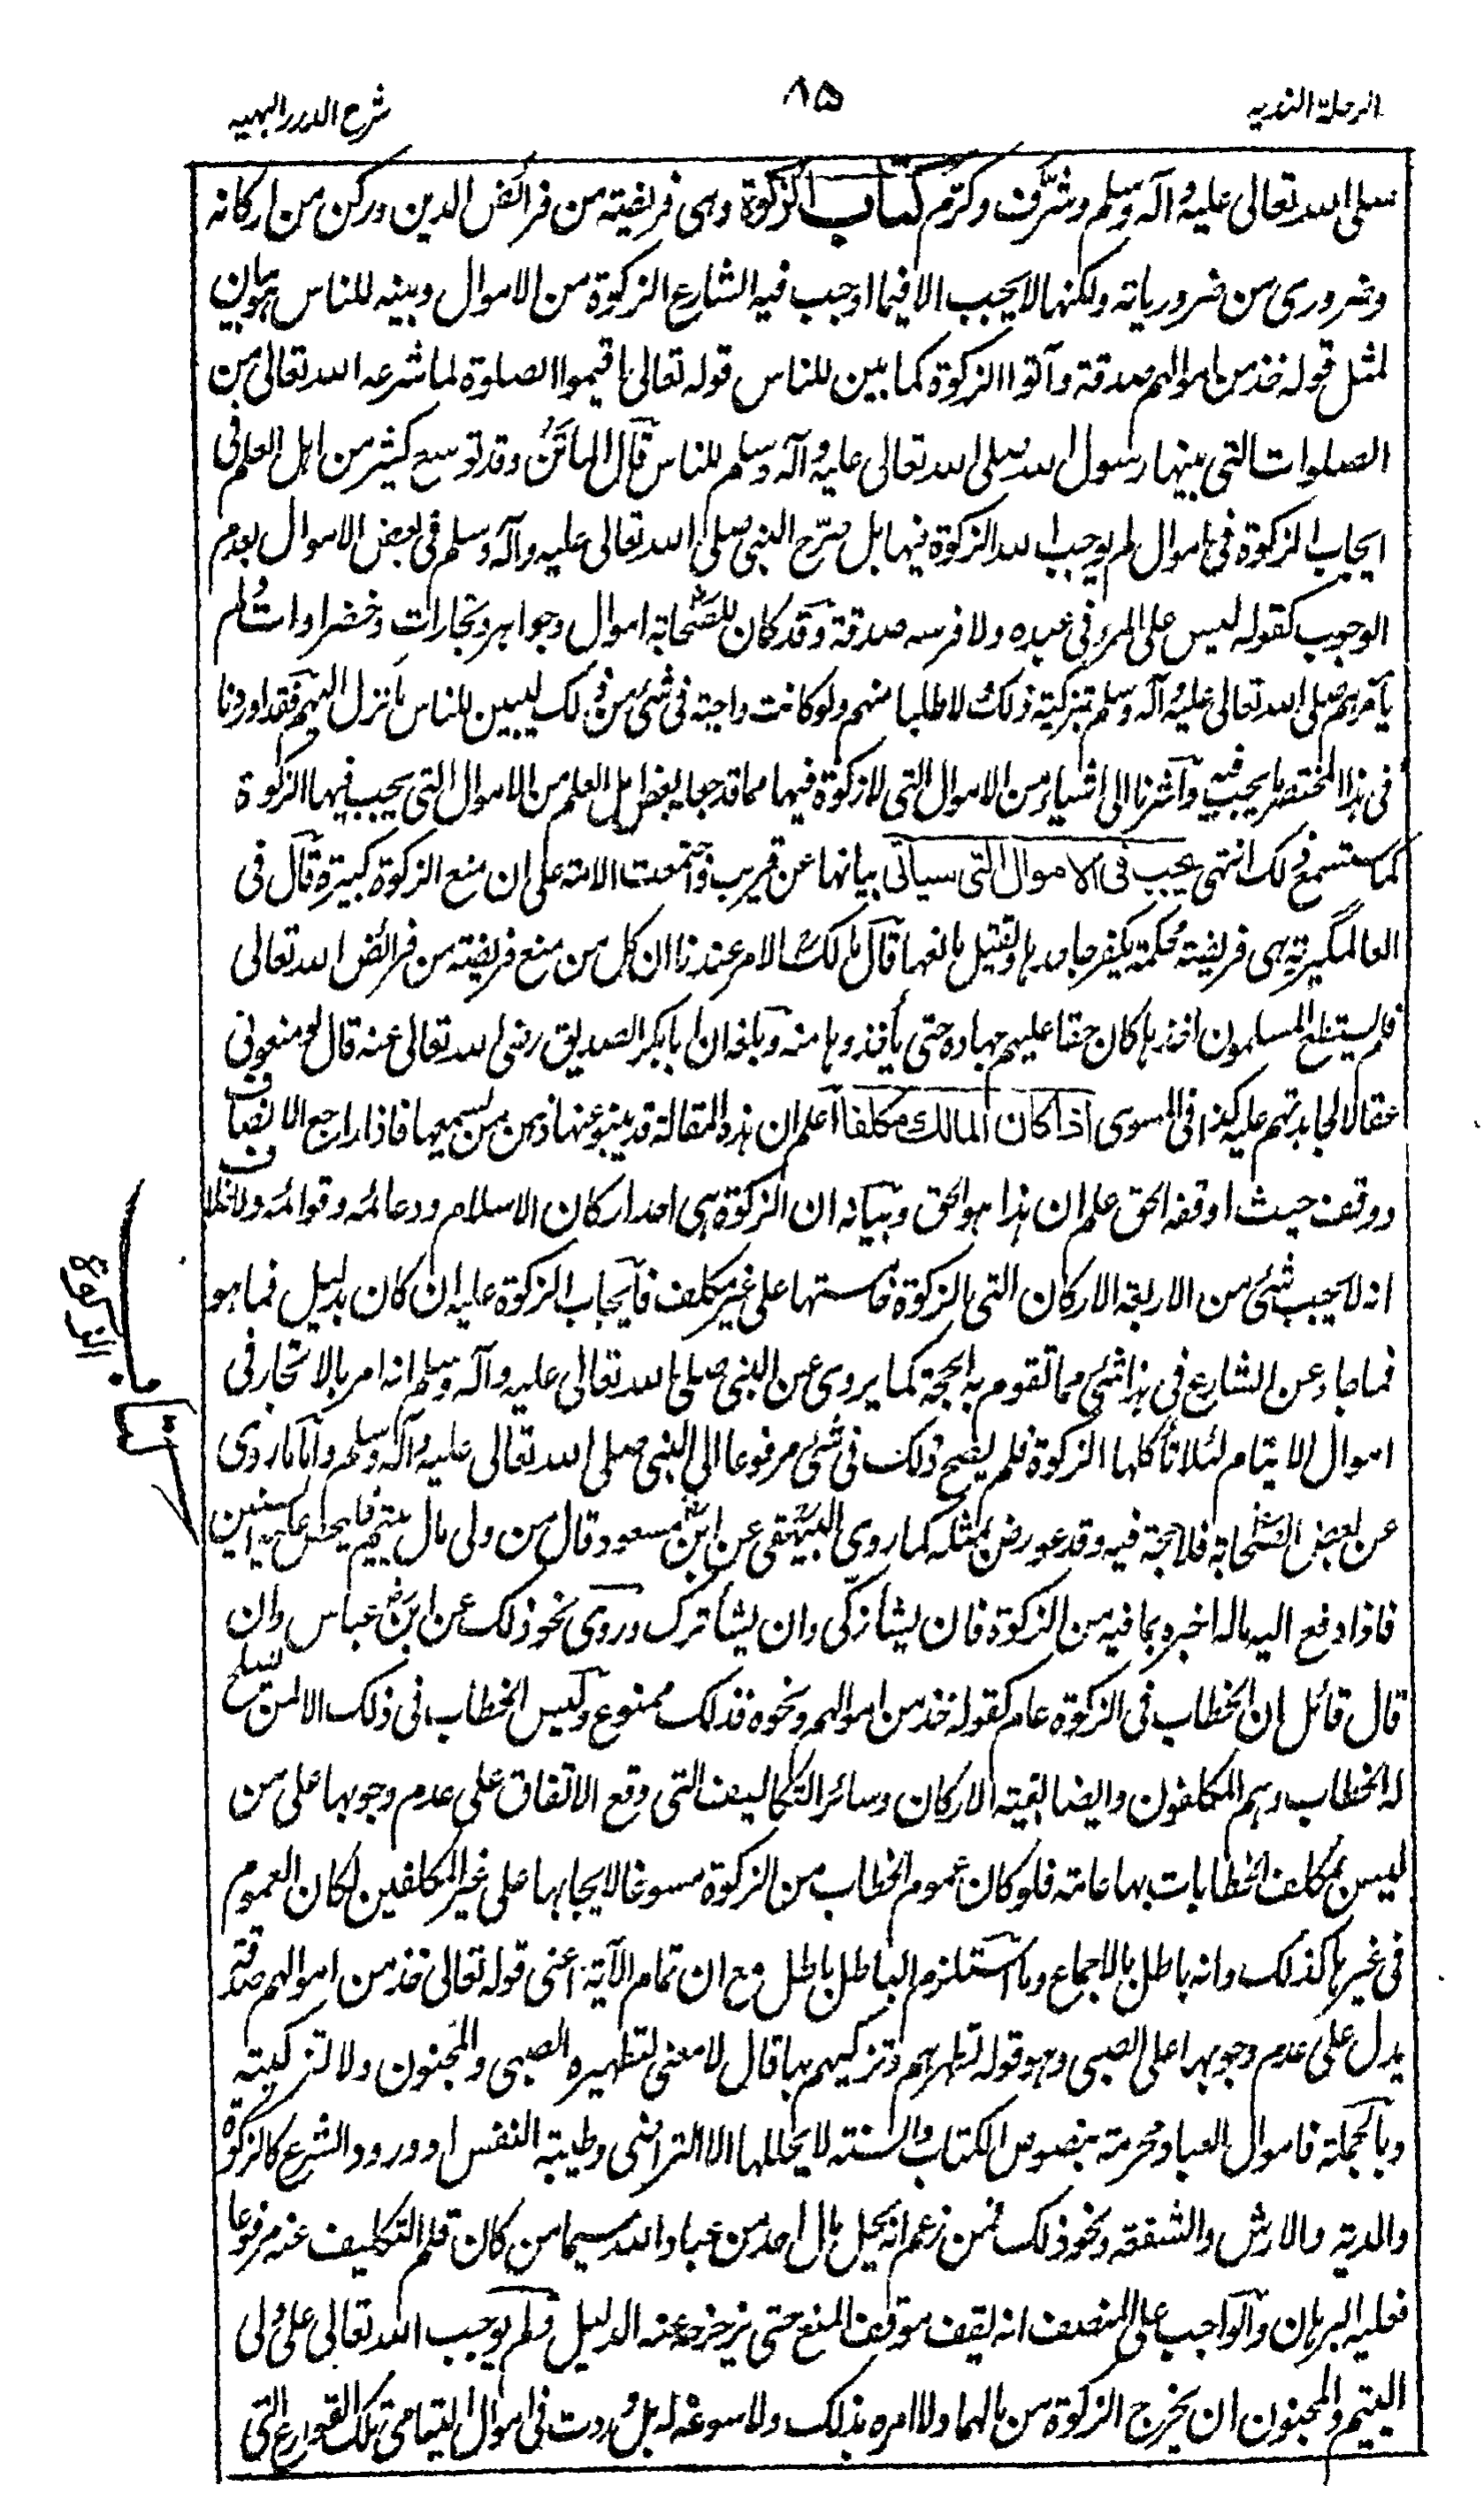 الرحلة الندیه
٨٥
شرح الدرر البهیه
صلى الله تعالى علیه وآله وسلم وشرّف وکرّم کتاب الزکوة وهی فریضة من فرائض الدین ورکن من ارکانه
وضروری من ضروریاته ولکنها لا یجب الا فیما اوجب فیه الشارع الزکوة من الاموال وبینه للناس هو بیان
لمثل قوله خذ من اموالهم صدقة وآتوا الزکوة کما بین للناس قوله تعالى اقیموا الصلوة لما شرعه الله تعالى من
الصلوات التی بینها رسول الله صلى الله تعالى علیه وآله وسلم للناس قال الماتن وقد توسع کثیر من اهل العلم فی
ایجاب الزکوة فی اموال لم یوجب الله الزکوة فیها بل صرّح النبی صلى الله تعالى علیه وآله وسلم فی بعض الاموال بعدم
الوجوب کقوله لیس على المرء فی عبده ولا فرسه صدقة وقد کان للصحابة اموال وجواهر وتجارات وخضراوات ولم
یأمرهم صلى الله تعالى علیه وآله وسلم بتزکیة ذلک ولا طلبها منهم ولو کانت واجبة فی شئ من ذلک لبیین للناس ما نزل الیهم فقد اوردنا
فی هذا المختصر ما یجب فیه واشرنا الى اشیاء من الاموال التی لا زکوة فیها مما قد جعله بعض اهل العلم من الاموال التی یجب فیها الزکوة
کما ستسمع ذلک انتهى یجب فی الاموال التی سیأتی بیانها عن قریب واجتمعت الامة على ان منع الزکوة کبیرة قال فی
العالمگیریة هی فریضة محکمة یکفر جاحدها ویقتل مانعها قال مالک الامر عندنا ان کل من منع فریضة من فرائض الله تعالى
فلم یستطع المسلمون اخذها کان حقا علیهم جهاده حتى یأخذوها منه وبلغه ان ابا بکر الصدیق رضی الله تعالى عنه قال لو منعونی
عقالا لجاهدتهم علیه کذا فی المسوى اذا کان المالک مکلفا اعلم ان هذه المقالة قد ینبو عنها ذهن من یسمعها فاذا راجع الانصاف
ووقف حیث اوقفه الحق علم ان هذا هو الحق وبیانه ان الزکوة هی احد ارکان الاسلام ودعائمه وقوائمه ولا خلاف
انه لا یجب شئ من الاربعة الارکان التی الزکوة خامستها على غیر مکلف فایجاب الزکوة علیه ان کان بدلیل فما هو
فما جاء عن الشارع فی هذا شئ مما تقوم به الحجة کما یروى عن النبی صلى الله تعالى علیه وآله وسلم انه امر بالاتجار فی
اموال الایتام لئلا تأکلها الزکوة فلم یصح ذلک فی شئ مرفوعا الى النبی صلى الله تعالى علیه وآله وسلم واما ما روى
عن بعض الصحابة فلا حجة فیه وقد عورض بمثله کما روى البیهقی عن ابن مسعود قال من ولى مال یتیم فلیحص علیه السنین
فاذا دفع الیه ماله اخبره بما فیه من الزکوة فان یشأ زکى وان یشأ ترک وروى نحو ذلک عن ابن عباس وان
قال قائل ان الخطاب فی الزکوة عام کقوله خذ من اموالهم ونحوه فذلک ممنوع ولیس الخطاب فی ذلک الا لمن یصلح
له الخطاب وهم المکلفون وایضا بقیة الارکان وسائر التکالیف التی وقع الاتفاق على عدم وجوبها على من
لیس بمکلف الخطابات بها عامة فلو کان عموم الخطاب من الزکوة مسوغا لایجابها على غیر المکلفین لکان العموم
فی غیرها کذلک وانه باطل بالاجماع وما استلزم الباطل باطل مع ان تمام الآیة اعنی قوله تعالى خذ من اموالهم صدقة
یدل على عدم وجوبها على الصبی وهو قوله تطهرهم وتزکیهم بها قال لا معنى لتطهیره الصبی والمجنون ولا لتزکیته
وبالجملة فاموال العباد محرمة بنصوص الکتاب والسنة لا یحللها الا التراضی وطیبة النفس او ورود الشرع کالزکوة
والدیة والارش والشفعة ونحو ذلک فمن زعم انه یحل مال احد من عباد الله سیما من کان قلم التکلیف عنه مرفوعا
فعلیه البرهان والواجب على المنصف انه یقف موقف المنع حتى یزحزحه عنه الدلیل ولم یوجب الله تعالى على ولی
الیتیم والمجنون ان یخرج الزکوة من مالهما ولا امره بذلک ولا سوغه له بل وردت فی اموال الیتامى تلک القوارع التی
الزکوة